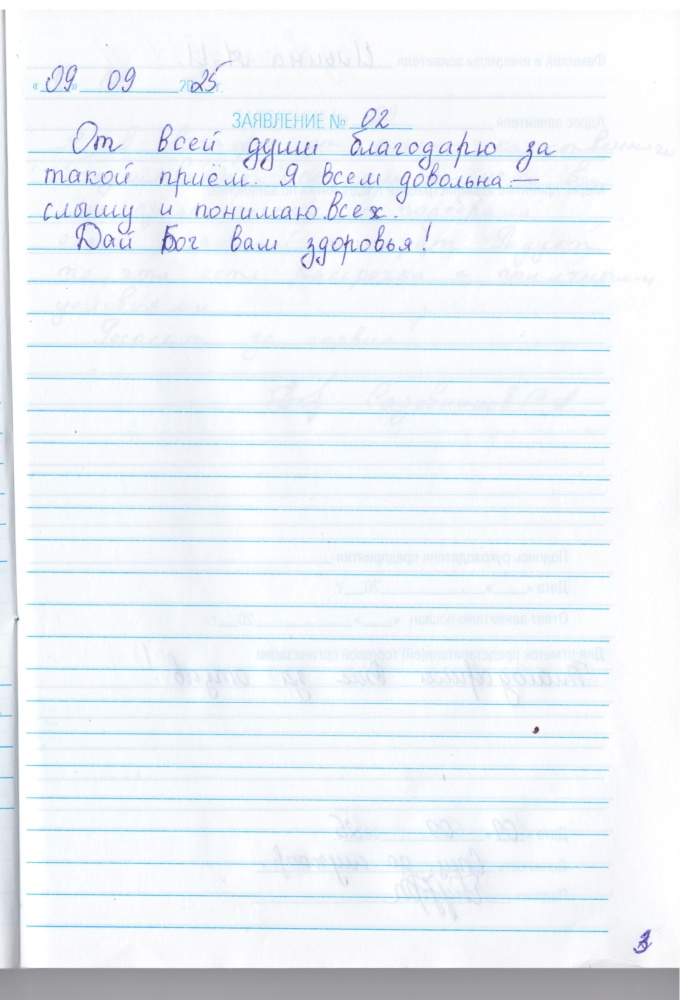 « 09 » 09 2025 г.
ЗАЯВЛЕНИЕ № 02
От всей души благодарю за
такой приём. Я всем довольна —
слышу и понимаю всех.
Дай Бог вам здоровья!
3